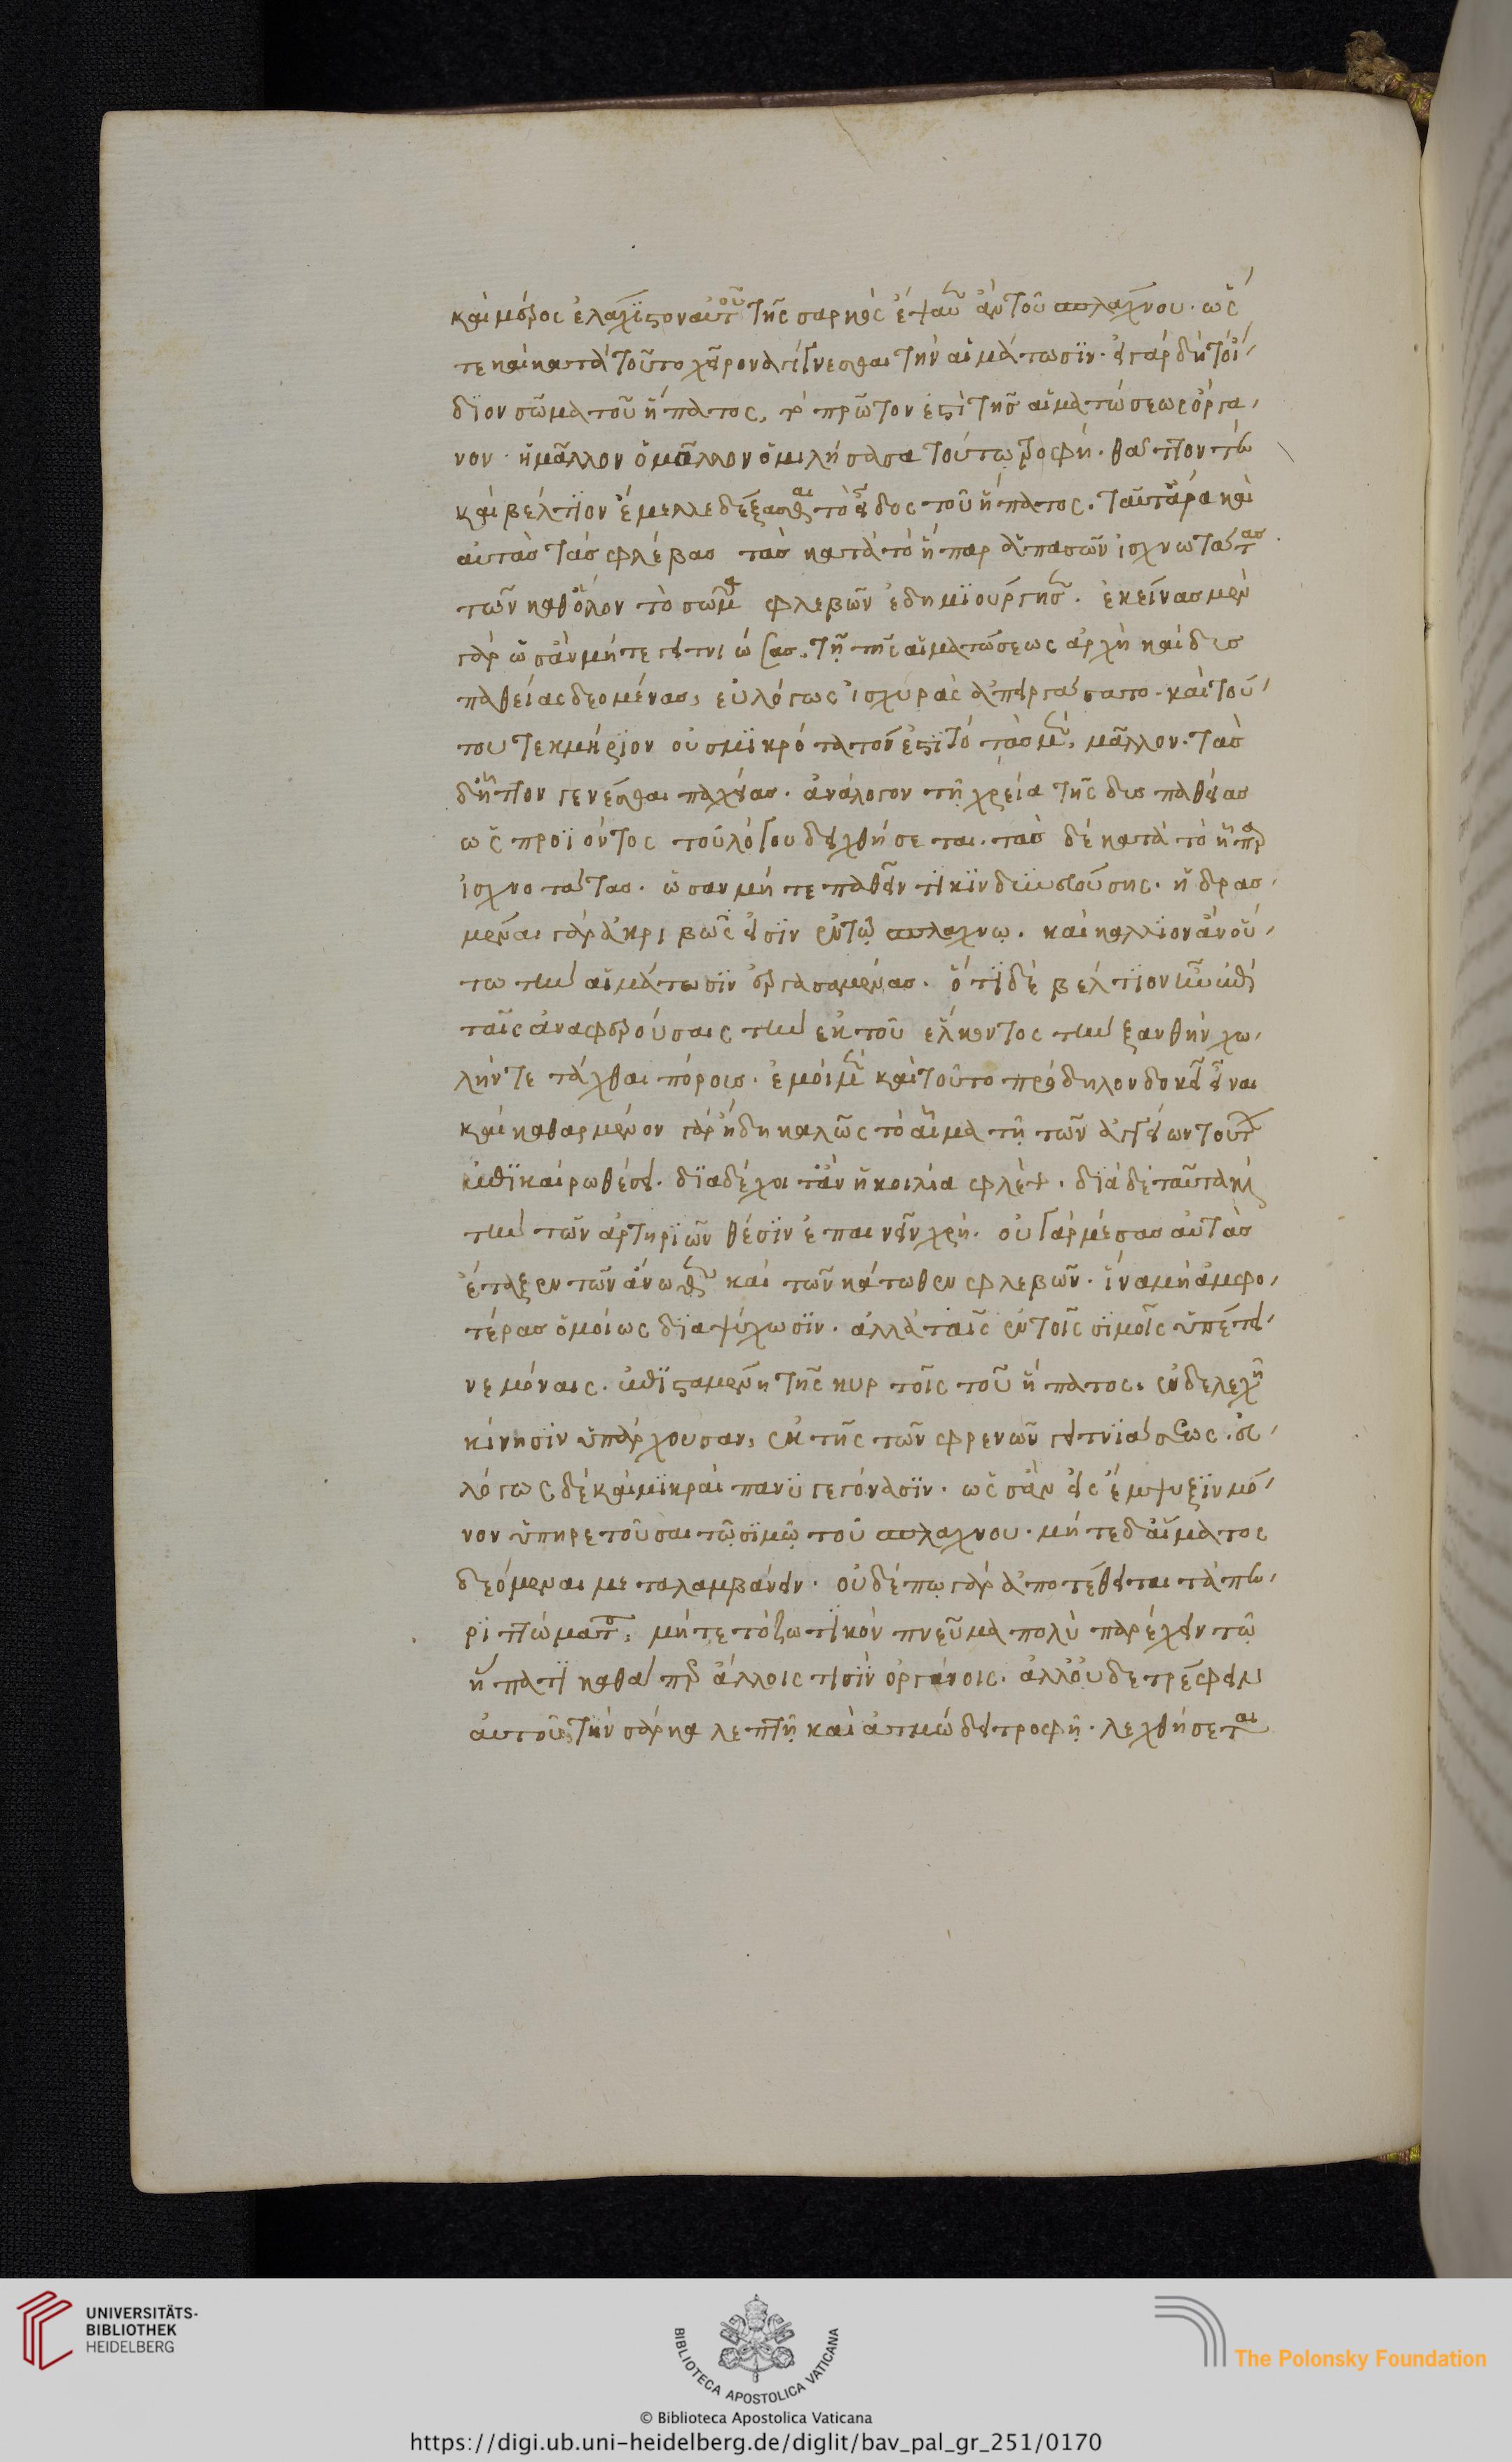 καὶ μέρος ἐλάχιστον αὐτοῦ τῆς σαρκὸς ἔψαυεν ἂν τοῦ σπλάγχνου. ὥσ
τε καὶ κατὰ τοῦτο χεῖρον ἂν γίγνεσθαι τὴν αἱμάτωσιν. εἰ γὰρ δὴ τὸ ἴ
διον σῶμα τοῦ ἥπατος, τὸ πρῶτον ἐστὶ τῆς αἱματώσεως ὄργα
νον. ἡ μᾶλλον ὁμιλήσασα τούτῳ τροφή. θᾶττόν τε
καὶ βέλτιον ἔμελλε δέξασθαι τὸ εἶδος τοῦ ἥπατος. ταῦτ' ἄρα καὶ
αὐτὰς τὰς φλέβας τὰς κατὰ τὸ ἧπαρ ἁπασῶν ἰσχνωτάτας
τῶν καθ' ὅλον τὸ σῶμα φλεβῶν ἐδημιούργησεν. ἐκείνας μὲν
γὰρ ὡσὰν μήτε γειτνιώσας τῇ τῆς αἱματώσεως ἀρχῇ καὶ δυσ
παθείας δεομένας, εὐλόγως ἰσχυρὰς ἀπειργάσατο. καὶ τού
του τεκμήριον οὐ σμικρότατον ἐστὶ τὸ τὰς μὲν, μᾶλλον. τὰς
δ' ἧττον γενέσθαι παχείας. ἀνάλογον τῇ χρείᾳ τῆς δυσπαθείας
ὡς προϊόντος τοῦ λόγου δειχθήσεται. τὰς δὲ κατὰ τὸ ἧπαρ
ἰσχνοτάτας. ὡσὰν μήτε παθεῖν τι κινδυνευούσης. ἡδρασ
μέναι γὰρ ἀκριβῶς εἰσὶν ἐν τῷ σπλάγχνῳ. καὶ κάλλιον ἂν οὕ
τω τὴν αἱμάτωσιν ἐργασαμένας. ὅτι δὲ βέλτιον ἦν ἐπὶ
ταῖς ἀναφερούσαις τὴν ἐκ τοῦ ἕλκοντος τὴν ξανθὴν χο
λήν τε τάχθαι πόροις. ἐμοὶ μὲν καὶ τοῦτο πρόδηλον δοκεῖ εἶναι
καὶ καθαρμένον γὰρ ἤδη καλῶς τὸ αἷμα τῇ τῶν ἀγγείων τούτων
ἐπικαίρῳ θέσει. διαδέχοιτ' ἂν ἡ κοιλία φλέψ. διὰ δὲ ταῦτα καὶ
τὴν τῶν ἀρτηριῶν θέσιν ἐπαινεῖν χρή. οὐ γὰρ μέσας αὐτὰς
ἔταξεν τῶν ἄνωθεν καὶ τῶν κάτωθεν φλεβῶν. ἵνα μὴ ἀμφο
τέρας ὁμοίως διαψύχωσιν. ἀλλὰ ταῖς ἐν τοῖς σιμοῖς ὑπέτει
νε μόναις. ἐπισταμένη τῆς κυρτοῖς τοῦ ἥπατος. ἐνδελεχῆ
κίνησιν ὑπάρχουσαν, ἐκ τῆς τῶν φρενῶν γειτνιάσεως. εὐ
λόγως δὲ καὶ μικραὶ πάνυ γεγόνασιν. ὡσὰν εἰς ἔμψυξιν μό
νον ὑπηρετοῦσαι τῷ σιμῷ τοῦ σπλάγχνου. μήτε δ' αἵματος
δεόμεναι μεταλαμβάνειν. οὐδέπω γὰρ ἀποτέθειται τὰ πε
ριττώματα, μήτε τὸ ζωτικὸν πνεῦμα πολὺ παρέχειν τῷ
ἥπατι καθάπερ ἄλλοις τισὶν ὀργάνοις. ἀλλ' οὐδὲ τρέφειν
αὐτοῦ τὴν σάρκα λεπτῇ καὶ ἀτμώδει τροφῇ. λεχθήσεται